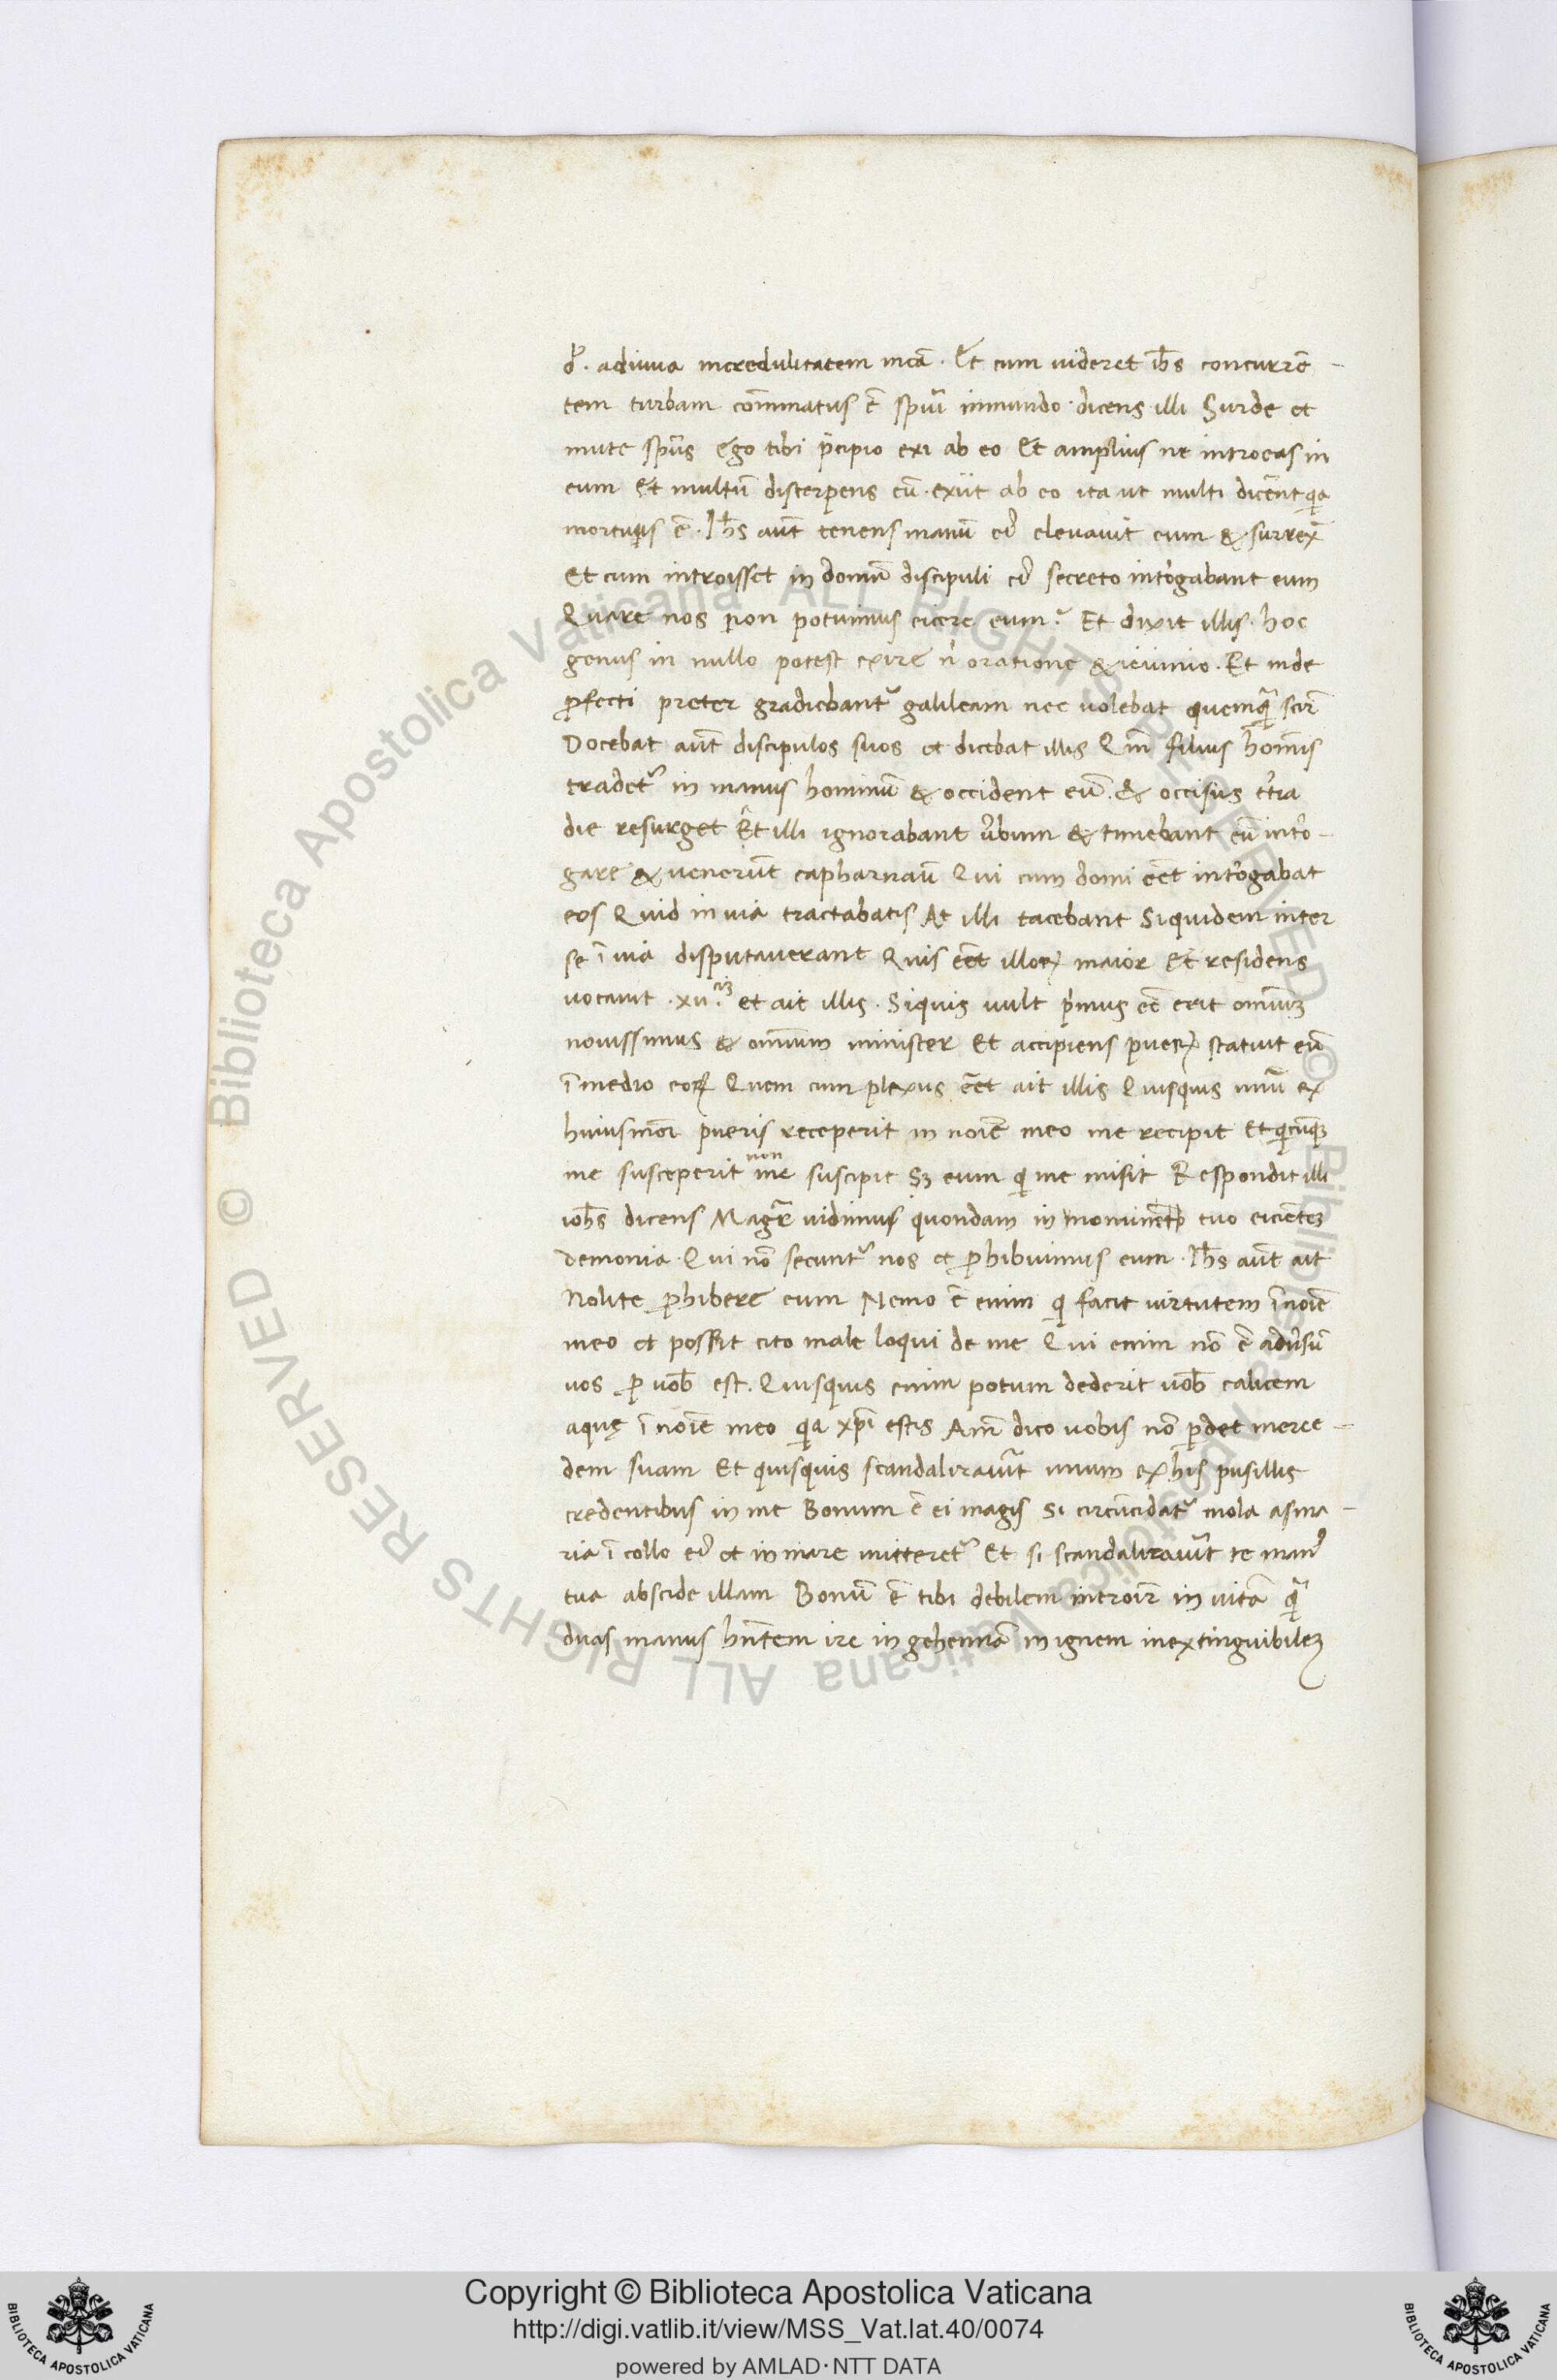 dẽ. adiuva incredulitatem meã. Et cum videret ihs̃ concurrẽ-
tem turbam cõminatus ẽ spũi inmundo. dicens illi Surde et
mute spũs ego tibi p̃cipio exi ab eo Et amplius ne introeas in
eum Et multũ discerpens eũ. exiit ab eo ita ut multi dicẽnt quia
mortuus ẽ. Ihs̃ aũt tenens manũ eiꝰ elevavit eum & surrex̃
Et cum introisset in domũ discipuli eiꝰ secreto intr̃ogabant eum
Quare nos non potuimus eicere eum? Et dixit illis. hoc
genus in nullo potest exire nĩ oratione & ieiunio. Et inde
ꝓfecti preter gradiebantᷣ galileam nec volebat quemq̃ scir̃
Docebat aũt discipulos suos et dicebat illis Qm̃ filius homĩs
tradetᷣ in manus hominũ & occident eũ. & occisus t̃tia
die resurget Et illi ignorabant ṽbum & timebant eũ intr̃o-
gare & venerũt capharnaũ Qui cum domi eẽt intr̃ogabat
eos Quid in via tractabatis At illi tacebant Siquidem inter
se ĩ via disputaverant Quis eẽt illoꝝ maior Et residens
vocavit .xii.cĩꝫ et ait illis. Siquis vult p̃imus eẽ erit omniũꝫ
novissimus & omniũm minister Et accipiens pueꝝ statuit eũ
ĩ medio eoꝝ Quem cum plexus eẽt ait illis Quisquis unũ ex
huiusmõi pueris receperit in noĩe meo me recipit Et quicũqꝫ
me susceperit non me suscipit Sꝫ eum qui me misit Respondit illi
iohs̃ dicens Magr̃ vidimus quondam in nomine tuo eiciẽteꝫ
demonia. Qui nõ secuntᷣ nos et ꝓhibuimus eum. Ihs̃ aũt ait
Nolite ꝓhibere eum Nemo ẽ enim qui facit virtutem ĩ noĩe
meo et possit cito male loqui de me Qui enim nõ ẽ adṽsũ
vos ꝓ vob̃ est. Quisquis enim potum dederit vob̃ calicem
aquę ĩ noĩe meo quia xp̃i estis Am̃ dico vobis nõ ꝑdet merce-
dem suam Et quisquis scandaliravũit unum ex his pusillis
credentibus in me Bonum ẽ ei magis Si circũcidatᷣ mola asina-
ria ĩ collo eiꝰ et in mare mitteretᷣ Et si scandaliravit̃ te manꝰ
tua abscide illam Bonũ ẽ tibi debilem introir̃ in vitã q̃
duas manus hñtem ire in gehennã in ignem inextinguibileꝫ
© Biblioteca Apostolica Vaticana ALL RIGHTS RESERVED © Biblioteca Apostolica Vaticana ALL RIGHTS RESERVED
Copyright © Biblioteca Apostolica Vaticana
http://digi.vatlib.it/view/MSS_Vat.lat.40/0074
powered by AMLAD·NTT DATA
BIBLIOTECA APOSTOLICA VATICANA
BIBLIOTECA APOSTOLICA VATICANA